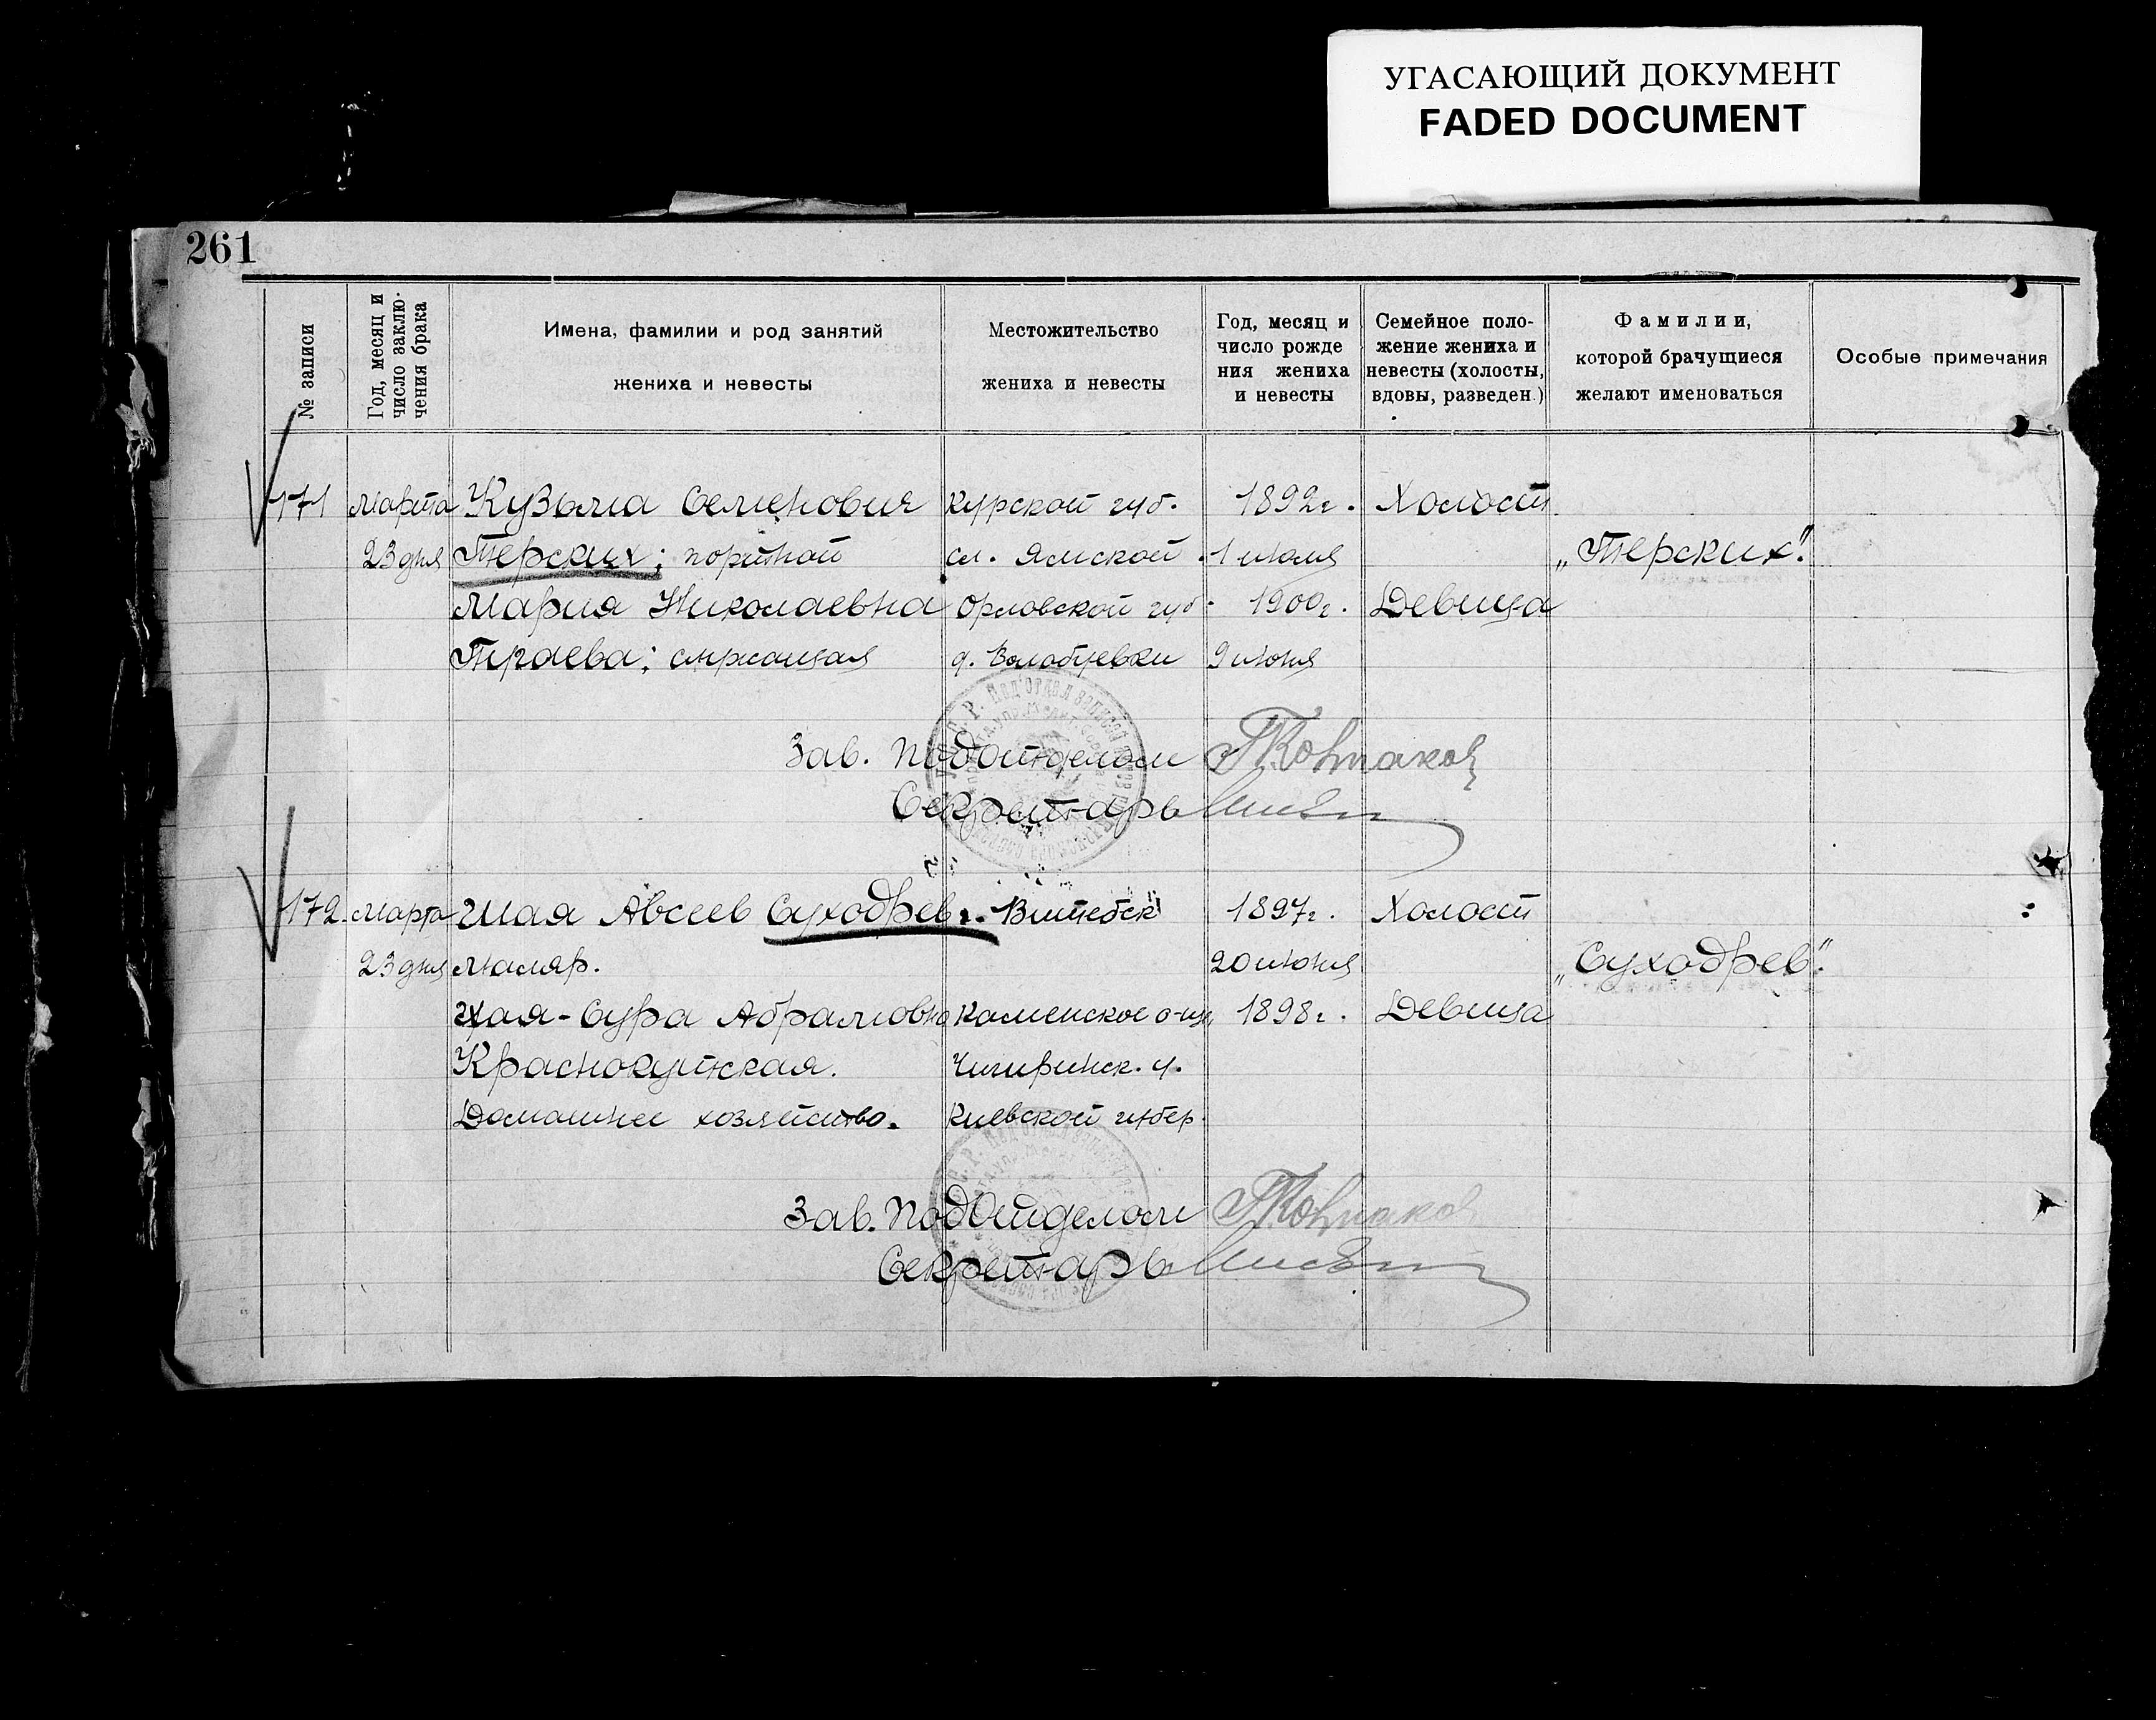 УГАСАЮЩИЙ ДОКУМЕНТ
FADED DOCUMENT
261
№ записи
Год, месяц и
число заклю-
чения брака
Имена, фамилии и род занятий
жениха и невесты
Местожительство
жениха и невесты
Год, месяц и
число рожде
ния жениха
и невесты
Семейное поло-
жение жениха и
невесты (холосты,
вдовы, разведен.)
Фамилии,
которой брачущиеся
желают именоваться
Особые примечания
171 марта Кузьма Семенович Курской губ. 1892г. Холост
23 дня Терских; портной сл. Ямской. 1 июля „Терских".
Мария Николаевна Орловской губ. 1900г. Девица
служащая д. 9 июня
Зав. Подотделом
Секретарь
172. марта Шая Авсеев Суходрев г. Витебск 1897г. Холост
23 дня маляр. 20 июня „Суходрев".
Хая-Сура Абрамовна Каменское 1898г. Девица
Краснокутская. Чигиринск. у.
Домашнее хозяйство. Киевской губер.
Зав. Подотделом
Секретарь